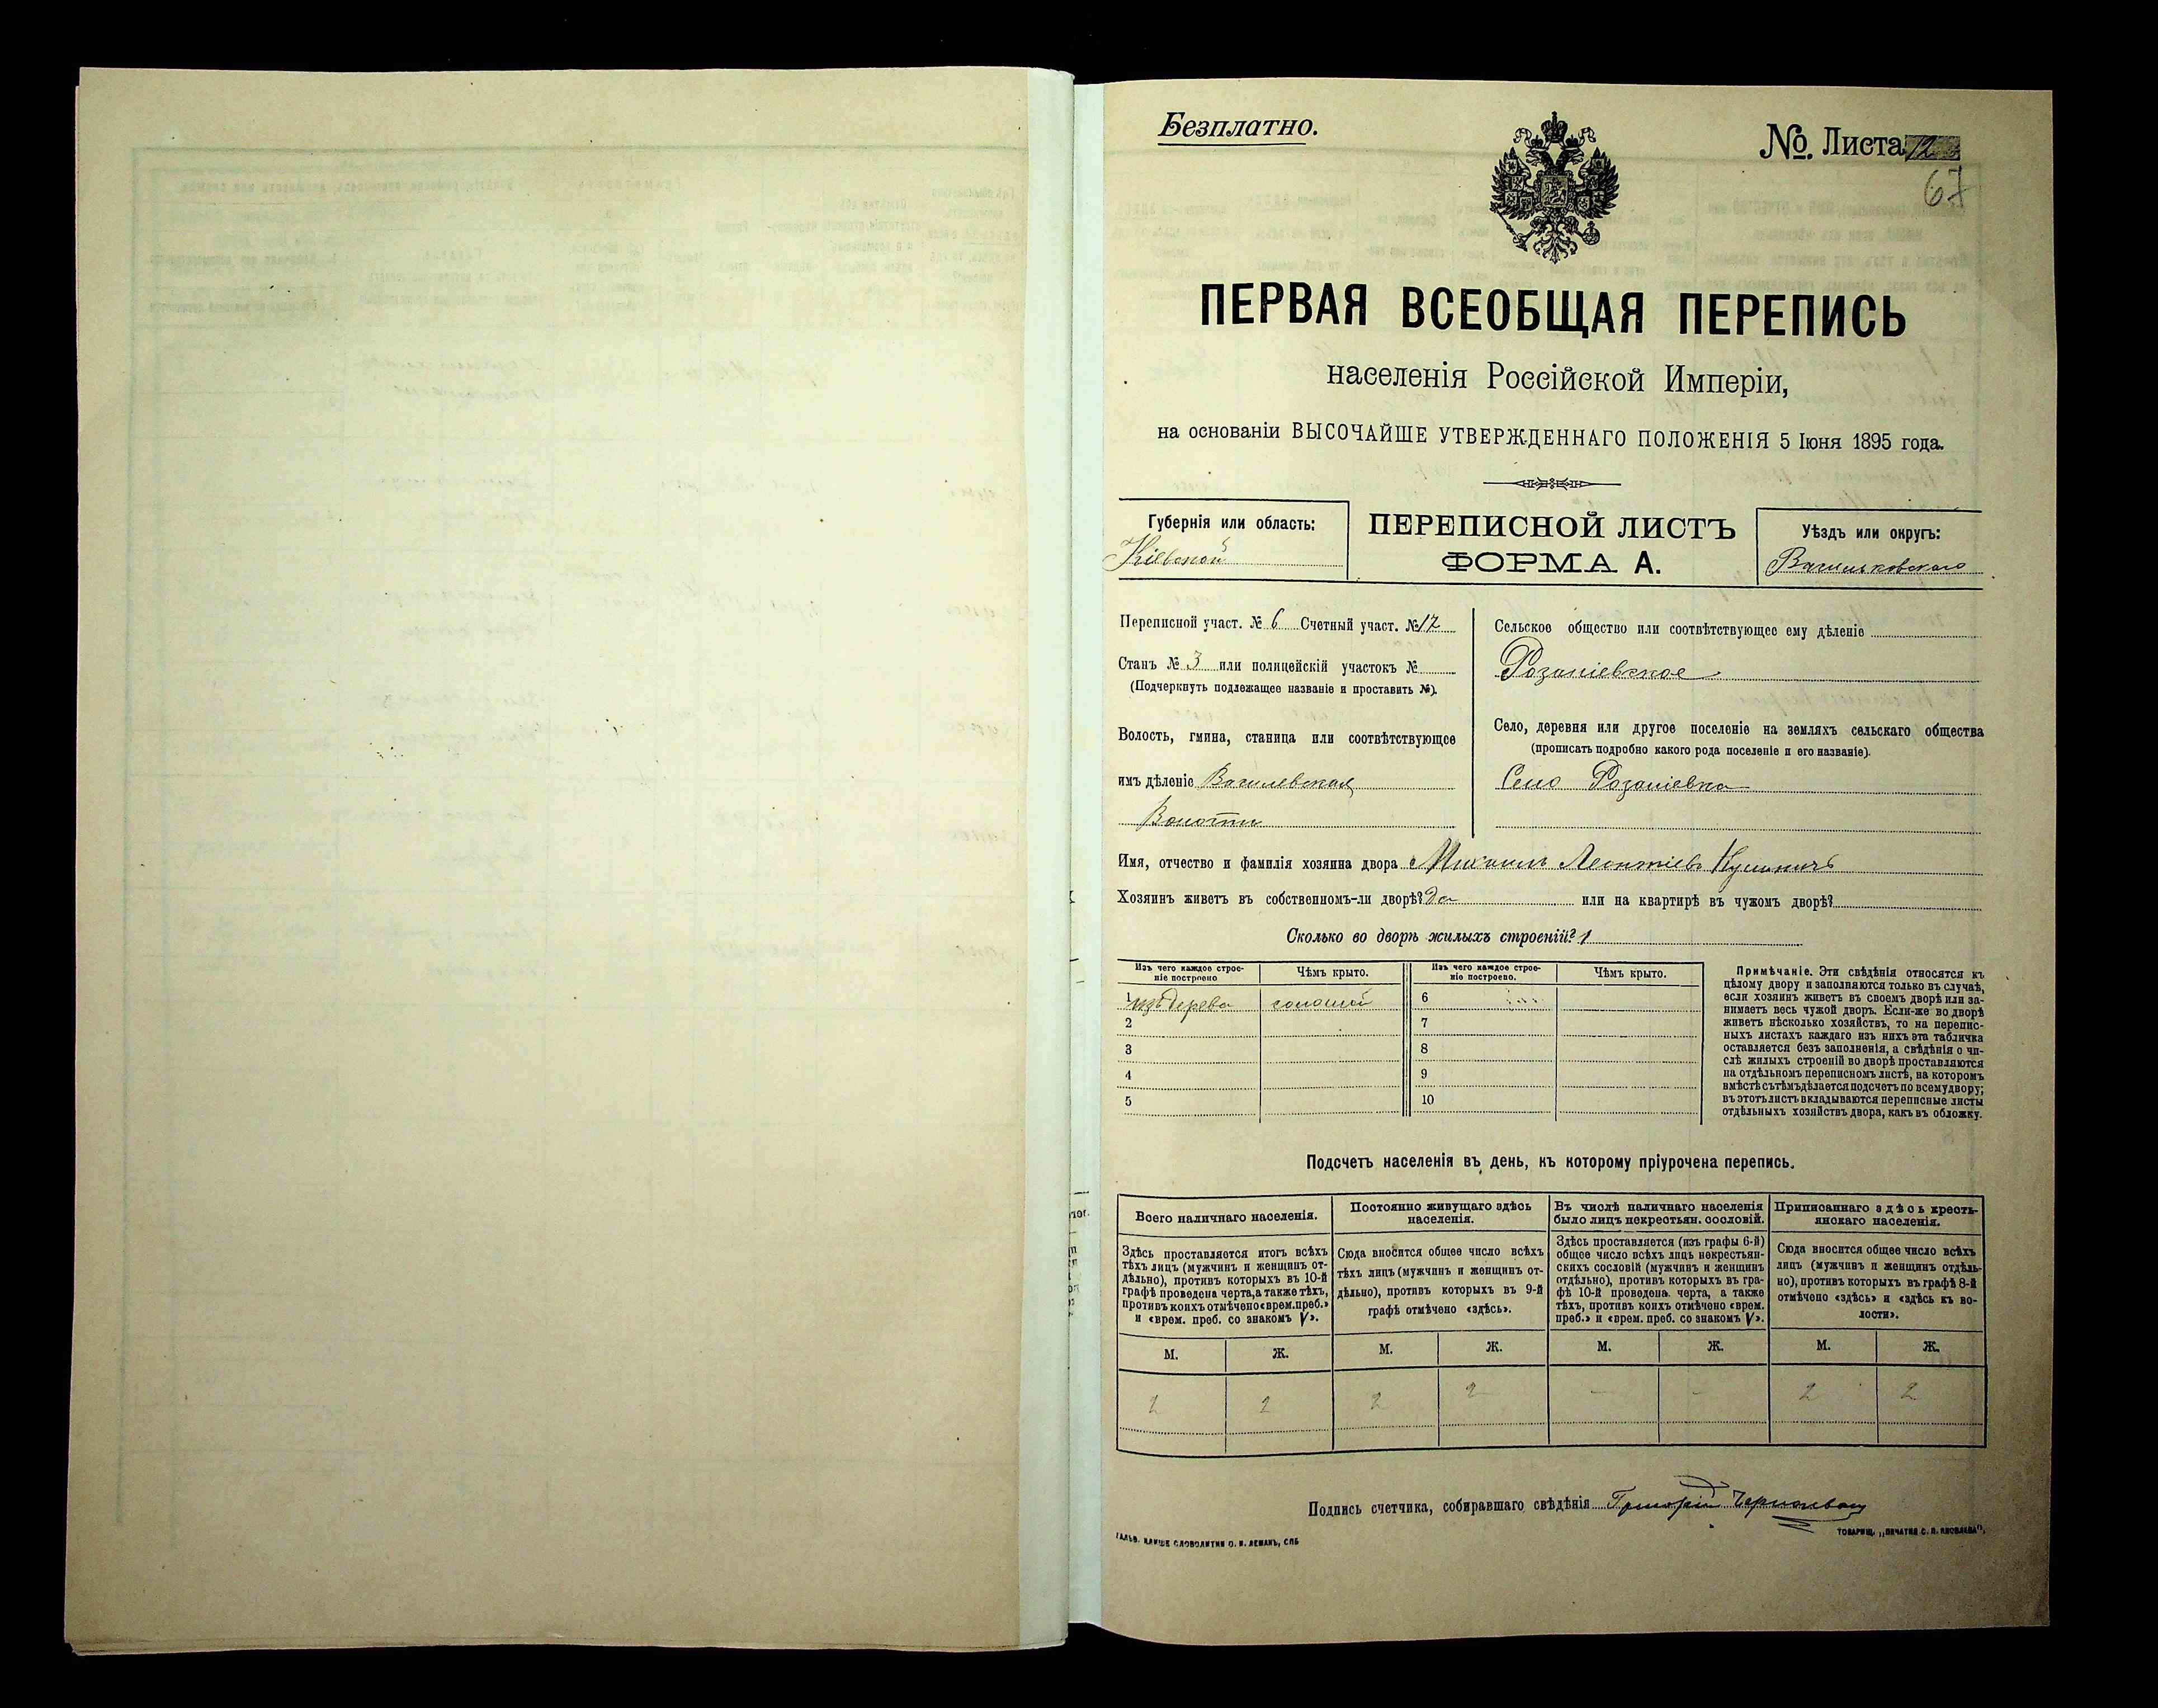 Безплатно.
№. Листа 12
67
ПЕРВАЯ ВСЕОБЩАЯ ПЕРЕПИСЬ
населенія Россійской Имперіи,
на основаніи ВЫСОЧАЙШЕ УТВЕРЖДЕННАГО ПОЛОЖЕНІЯ 5 Іюня 1895 года.
Губернія или область:
Кіевской
ПЕРЕПИСНОЙ ЛИСТЪ
ФОРМА А.
Уѣздъ или округъ:
Васильковскаго
Переписной участ. № 6 Счетный участ. № 12
Станъ № 3 или полицейскій участокъ №
(Подчеркнуть подлежащее названіе и проставить №).
Волость, гмина, станица или соотвѣтствующее
имъ дѣленіе
Волости
Сельское общество или соотвѣтствующее ему дѣленіе
Село, деревня или другое поселеніе на земляхъ сельскаго общества
(прописать подробно какого рода поселеніе и его названіе).
Село
Имя, отчество и фамилія хозяина двора Михаилъ Леонтіевъ
Хозяинъ живетъ въ собственномъ-ли дворѣ? Да или на квартирѣ въ чужомъ дворѣ?
Сколько во дворѣ жилыхъ строеній? 1
Изъ чего каждое строе-
ніе построено
Чѣмъ крыто.
Изъ чего каждое строе-
ніе построено.
Чѣмъ крыто.
1 изъ дерева соломой 6
2 7
3 8
4 9
5 10
Примѣчаніе. Эти свѣдѣнія относятся къ
цѣлому двору и заполняются только въ случаѣ,
если хозяинъ живетъ въ своемъ дворѣ или за-
нимаетъ весь чужой дворъ. Если-же во дворѣ
живетъ нѣсколько хозяйствъ, то на перепис-
ныхъ листахъ каждаго изъ нихъ эта табличка
оставляется безъ заполненія, а свѣдѣнія о чи-
слѣ жилыхъ строеній во дворѣ проставляются
на отдѣльномъ переписномъ листѣ, на которомъ
вмѣстѣ съ тѣмъ дѣлается подсчетъ по всему двору;
въ этотъ листъ вкладываются переписные листы
отдѣльныхъ хозяйствъ двора, какъ въ обложку.
Подсчетъ населенія въ день, къ которому пріурочена перепись.
Всего наличнаго населенія.
Здѣсь проставляется итогъ всѣхъ
тѣхъ лицъ (мужчинъ и женщинъ от-
дѣльно), противъ которыхъ въ 10-й
графѣ проведена черта, а также тѣхъ,
противъ коихъ отмѣчено «врем. преб.»
и «врем. преб. со знакомъ V».
Постоянно живущаго здѣсь
населенія.
Сюда вносится общее число всѣхъ
тѣхъ лицъ (мужчинъ и женщинъ от-
дѣльно), противъ которыхъ въ 9-й
графѣ отмѣчено «здѣсь».
Въ числѣ наличнаго населенія
было лицъ некрестьян. сословій.
Здѣсь проставляется (изъ графы 6-й)
общее число всѣхъ лицъ некрестьян-
скихъ сословій (мужчинъ и женщинъ
отдѣльно), противъ которыхъ въ гра-
фѣ 10-й проведена черта, а также
тѣхъ, противъ коихъ отмѣчено «врем.
преб.» и «врем. преб. со знакомъ V».
Приписаннаго здѣсь кресть-
янскаго населенія.
Сюда вносится общее число всѣхъ
лицъ (мужчинъ и женщинъ отдѣль-
но), противъ которыхъ въ графѣ 8-й
отмѣчено «здѣсь» и «здѣсь къ во-
лости».
М. Ж. М. Ж. М. Ж. М. Ж.
2 2 2 2 - - 2 2
Подпись счетчика, собиравшаго свѣдѣнія Григорій
ГАЛЬВ. КЛИШЕ СЛОВОЛИТНИ О. И. ЛЕМАНЪ, СПБ
ТОВАРИЩ. „ПЕЧАТНЯ С. П. ЯКОВЛЕВА".